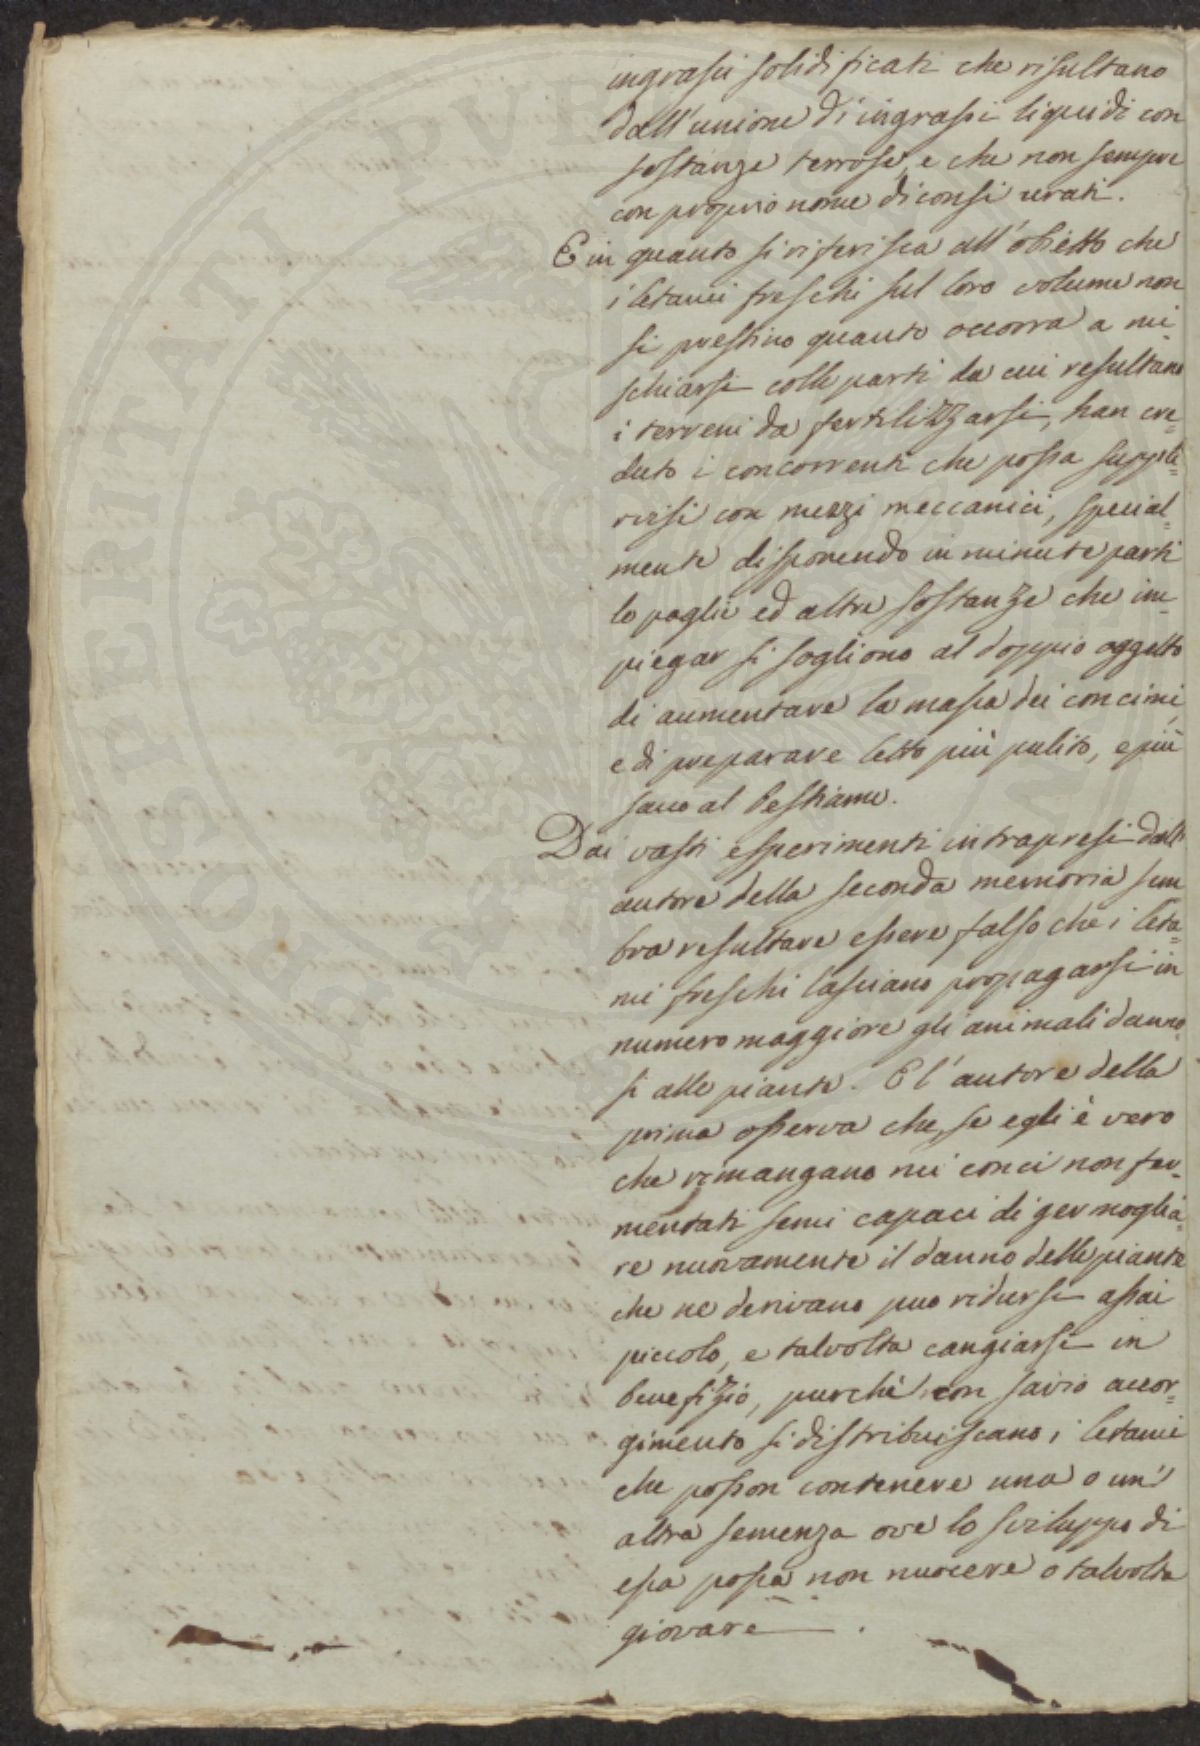 ingrassi solidificati che risultano
dall'unione di ingrassi liquidi con
sostanze terrose, e che non sempre
con proprio nome diconsi urati.
E in quanto si riferisca all'obietto che
i letami freschi sul loro volume non
si prestino quanto occorra a mi=
schiarsi colle parti da cui resultano
i terreni da fertilizzarsi, han cre=
duto i concorrenti che possa suppli=
rvisi con mezzi meccanici, special=
mente disponendo in minute parti
le paglie ed altre sostanze che im=
piegar si sogliono al doppio oggetto
di aumentare la massa dei concimi,
e di preparare letto più pulito, e più
sano al bestiame.
Dai vasti esperimenti intrapresi dall'
autore della seconda memoria sem
bra resultare essere falso che i leta=
mi freschi lasciano propagarsi in
numero maggiore gli animali danno=
si alle piante. E l'autore della
prima osserva che, se egli è vero
che rimangano nei conci non fer=
mentati semi capaci di germoglia=
re nuovamente il danno delle piante
che ne derivano puo ridursi assai
piccolo, e talvolta cangiarsi in
benefizio, purchè con savio accor=
gimento si distribuiscano i letami
che posson contenere una o un'
altra semenza ove lo sviluppo di
essa possa non nuocere o talvolta
giovare.
PROSPERITATI